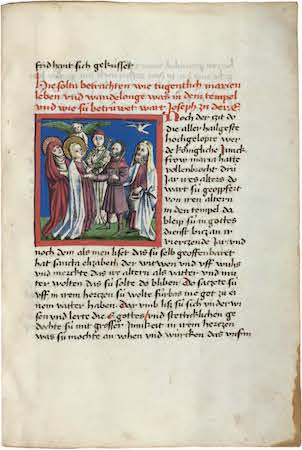 frid hant sich gekusset
Hie soltu betrachten wie tugentlich marien
leben vnd wandelonge was in dem tempel
vnd wie sú betrúwet wart Joseph zu der E
Noch der git do
die aller hailgeste
hochgelopte wer
de kúnigliche Junck
frow maria hatte
vollenbrocht drú
Jar ires alters do
wart sú geopfert
von iren altern
in den tempel do
bleip sú in gottes
dienst bitz an ir
vierzende jar vnd
noch dem als men liset das sú selb geoffenbaret
hat sancta elizabeth der witwen vnd
vnd merckte das ire altern als vatter vnd mů
ter wolten das sú solte do bliben do satzete sú
vff in irem hertzen sú wolte fúrbas me got zu ei
nem vatter haben dar vmb lies sú sich vnder wi
sen vnd lerte die E gottes vnd stetticklichen ge
dochte sú mit grosser Jnnikeit in irem hertzen
was sú mochte an vohen vnd wúrcken das vnsm